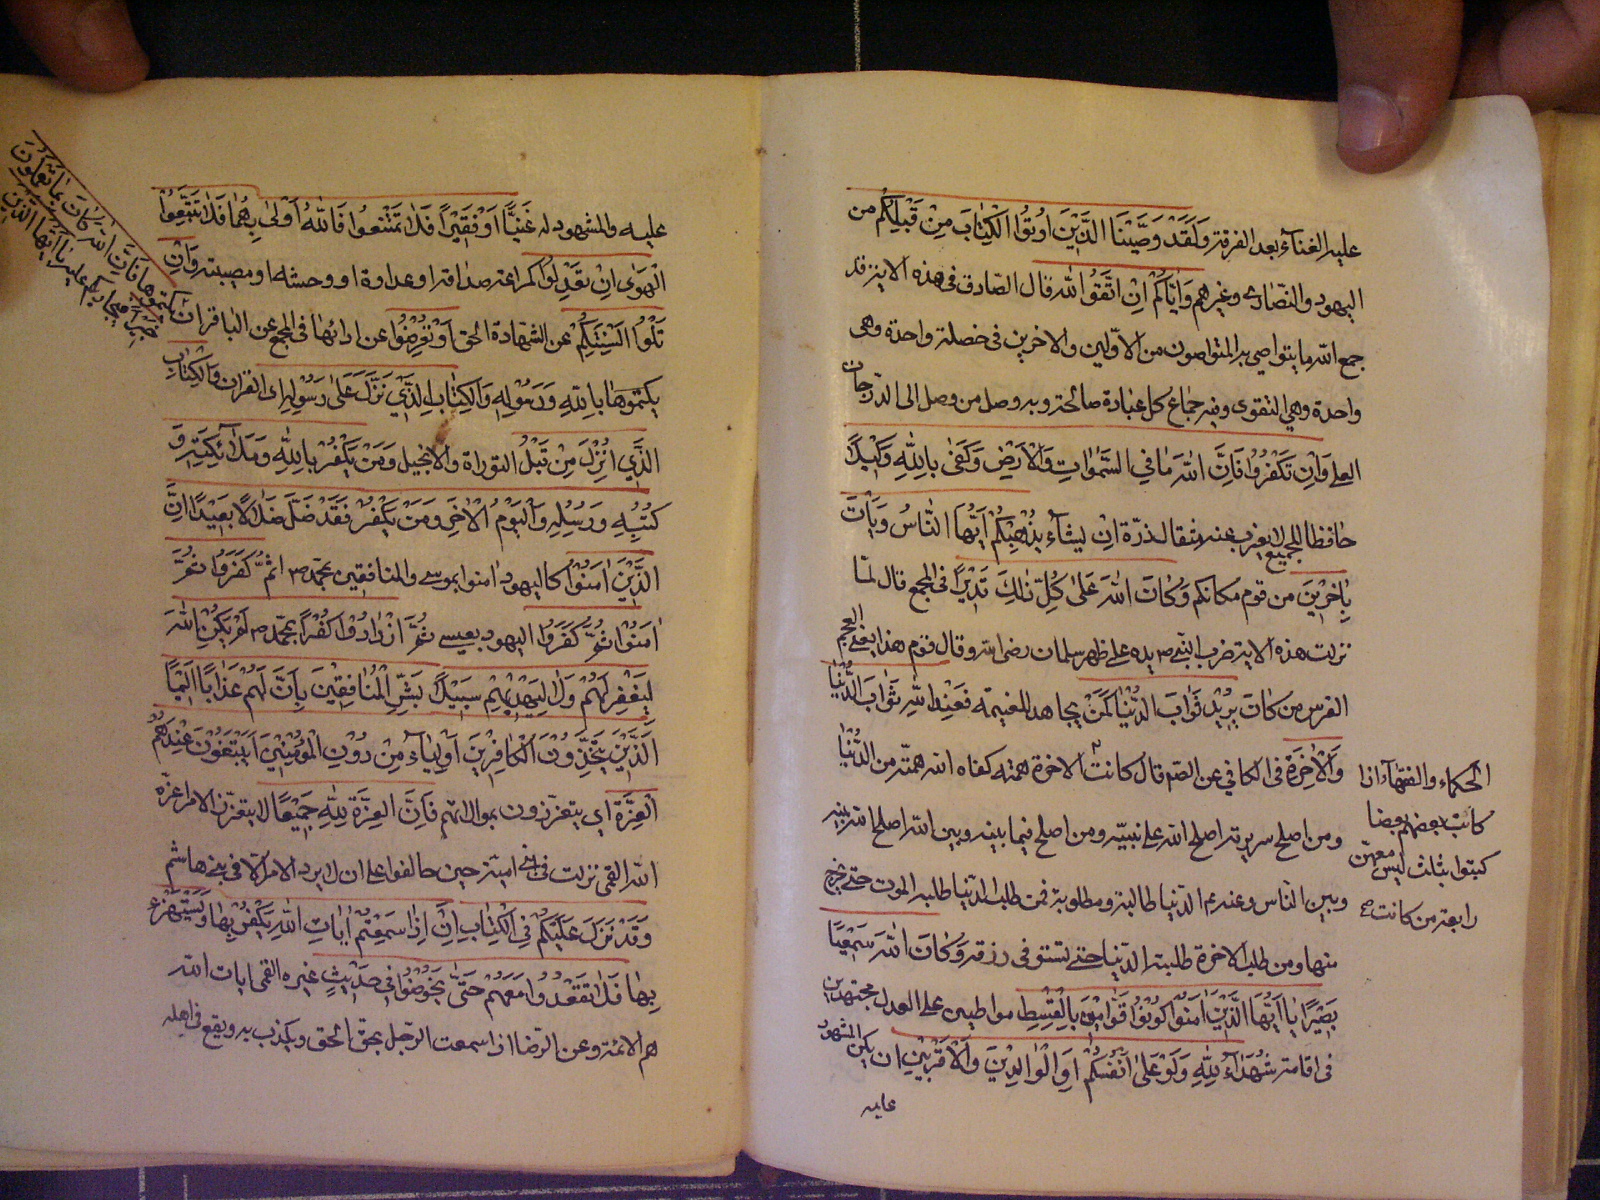 عليه الغناء بعد الفرقة وَلَقَدْ وَصَّيْنَا الَّذِيْنَ اُوتُوا الْكِتٰابَ مِنْ قَبْلِكُم من
اليهود والنصارى وغيرهم وَاِيّاكُمْ اِنْ اتَّقُوا الله قال الصادق في هذه الاية قد
جمع الله ما يتواصى به المتواصون من الاوّلين والاخرين في خصلة واحدة وهى
واحدة وهي التقوى وفيه جماع كل عبادة صالحة وبه وصل من وصل الى الدّرجات
العلى وَاِنْ تَكْفُرُوْا فَاِنَّ اللهَ مٰا في السَّمٰوٰاتِ وَالْاَرْضِ وَكَفٰى بِاللهِ وَكِيْلًا
حافظا للجميع لا يعزب عنه مثقال ذرّة اِنْ يَشَأْ يُذْهِبْكُمْ اَيُّهَا النّٰاسُ وَيَأْتِ
بِاٰخَرِيْنَ من قوم مكانكم وَكٰانَ اللهُ عَلىٰ كُلِّ ذٰلِكَ قَدِيْرًا في المجمع قال لمّا
نزلت هذه الاية ضرب النّبي ص يده على ظهر سلمان رضى الله وقال قوم هذا يعنى العجم
الفرس من كٰانَ يُرِيْدُ ثَوٰابَ الدُّنْيٰا كمَنْ يجاهد للغنيمة فَعِنْدَ اللهِ ثَوٰابُ الدُّنْيٰا
وَالْاٰخِرَةِ في الكافي عن الصّم قال كانت الاخرة همته كفاه الله همّه من الدُّنْيٰا
ومن اصلح سريرته اصلح الله علانيته ومن اصلح فيما بينه وبين الله اصلح الله بينه
وبين الناس وعنه ع الدّنيا طالبة ومطلوبة فمن طلب الدّنيا طلبه الموت حتى يخرج
منها ومن طلب الاخرة طلبته الدّنيا حتى تستوفى رزقه وَكٰانَ اللهُ سَمِيْعًا
بَصِيْرًا يٰا اَيُّهَا الَّذِيْنَ اٰمَنُوْا كُوْنُوْا قَوّٰامِيْنَ بِالْقِسْطِ مواظبين على العدل مجتهدين
في اقامته شُهَدٰاءَ لِلّٰهِ وَلَوْ عَلٰى اَنْفُسِكُمْ اَوِ الْوٰالِدَيْنِ وَالْاَقْرَبِيْنَ ان يكن المشهود
عليه
الحكماء والفقهاء اذا
كاتب بعضهم بعضا
كتبوا بثلث ليس معهن
رابعة من كانت صح
عليه والمشهود له غَنِيًّا اَوْ فَقِيْرًا فَلٰا تمتنعوا فَاللهُ اَوْلٰى بِهِمٰا فَلٰا تَتَّبِعُوا
الْهَوٰى اِنْ تَعْدِلُوْا كمراعة صداقة او عداوة او وحشة او مصيبة وَاِنْ
تَلْوُا اَلْسِنَتِكُمْ عن الشهادة الحق اَوْ تُعْرِضُوْا عن ادائها في المجمع عن الباقر ان
تكتموها فَاِنَّ اللهَ كٰانَ بِمٰا تَعْمَلُوْنَ
خَبِيْرًا فيجازيكم عليه يٰا اَيُّهَا الَّذِيْنَ
يكتموها بِاللهِ وَرَسُوْلِهِ وَالْكِتٰابِ الَّذِيْ نَزَّلَ عَلٰى رَسُوْلِهِ اى القران وَالْكِتٰابِ
الَّذِي اُنْزِلَ مِنْ قَبْلُ التوراة والانجيل وَمَنْ يَكْفُرْ بِاللهِ وَمَلٰائِكَتِهِ وَ
كُتُبِهِ وَرُسُلِهِ وَالْيَوْمِ الْاٰخِرِ وَمَنْ يَكْفُرْ فَقَدْ ضَلَّ ضَلٰالًا بَعِيْدًا اِنَّ
الَّذِيْنَ اٰمَنُوْا كاليهود امنوا بموسى والمنافقين بمحمّد ص ثُمَّ كَفَرُوْا ثُمَّ
اٰمَنُوْا ثُمَّ كَفَرُوْا اليهود بعيسى ثُمَّ ازْدٰادُوْا كُفْرًا بمحمّد ص لَمْ يَكُنِ اللهُ
لِيَغْفِرَ لَهُمْ وَلٰا لِيَهْدِيَهُمْ سَبِيْلًا بَشِّرِ الْمُنٰافِقِيْنَ بِاَنَّ لَهُمْ عَذٰابًا اَلِيْمًا
اَلَّذِيْنَ يَتَّخِذُوْنَ الْكٰافِرِيْنَ اَوْلِيٰاءَ مِنْ دُوْنِ الْمُؤْمِنِيْنَ اَيَبْتَغُوْنَ عِنْدَهُمُ
الْعِزَّةَ اى يتعززون بموالاتهم فَاِنَّ الْعِزَّةَ لِلّٰهِ جَمِيْعًا لا يتعزز الا من اعزّه
الله القمى نزلت في بني امية حين حالفوا على ان لا يردوا الامر في بنى هاشم
وَقَدْ نَزَّلَ عَلَيْكُمْ فِي الْكِتٰابِ اِنَّ اِذٰا سَمِعْتُمْ اٰيٰاتِ اللهِ يُكْفَرُ بِهٰا وَيُسْتَهْزَءُ
بِهٰا فَلٰا تَقْعُدُوْا مَعَهُمْ حَتّٰى يَخُوْضُوْا فِي حَدِيْثٍ غيره القمى ايات الله
هم الائمة وعن الرّضا اذا سمعت الرّجل يجحد الحق ويكذب به ويقع في اهله